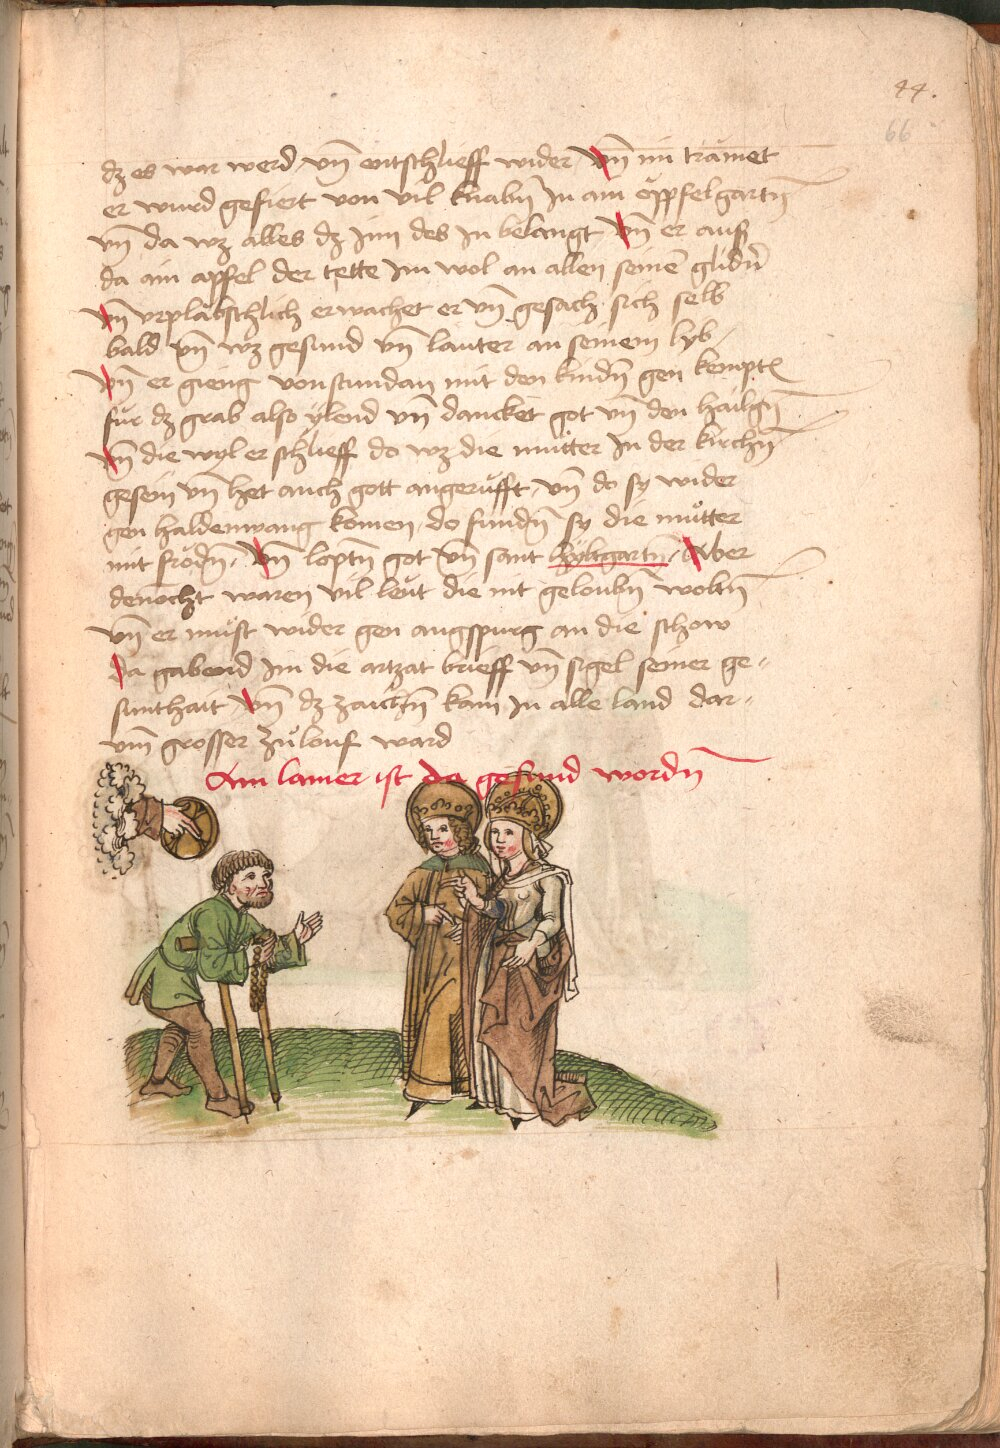 44.
66
dz es war werd vn̄ entschlieff wider vn̄ im tramet
er wurd gefiert von vil knabn̄ In ain öppfelgartn̄
vn̄ da wz alles dz Inn des In belangt vn̄ er auß
da ain apfel der tette Im wol an allen seinē glidn̄
vn̄ vrplabschlich erwachet er vn̄ gesach sich selb
bald vn̄ wz gesund vn̄ lauter an seinem lyb
vn̄ er gieng von stundan mit den kindn̄ gen kempt
für dz grab also ylend vn̄ dancket got vn̄ den hailgn̄
vn̄ die wyl er schlieff do wz die mütter In der kirchn̄
gesein vn̄ het auch gott angerüfft vn̄ do sy wider
gen haldenwang komen do fundn̄ sy die mütter
mit frödn̄. vn̄ loptn̄ got vn̄ sant hyltgartn̄ Aber
dēnocht waren vil leüt die nit geloubn̄ woltn̄
vn̄ er müst wider gen augspurg an die schow
Da gabend Im die artzat brieff vn̄ sigel seiner ge-
sunthait vn̄ dz zaichn̄ kam In alle land dar-
vm̄ grosser zülouf ward
Ain lamer ist da gesund wordn̄